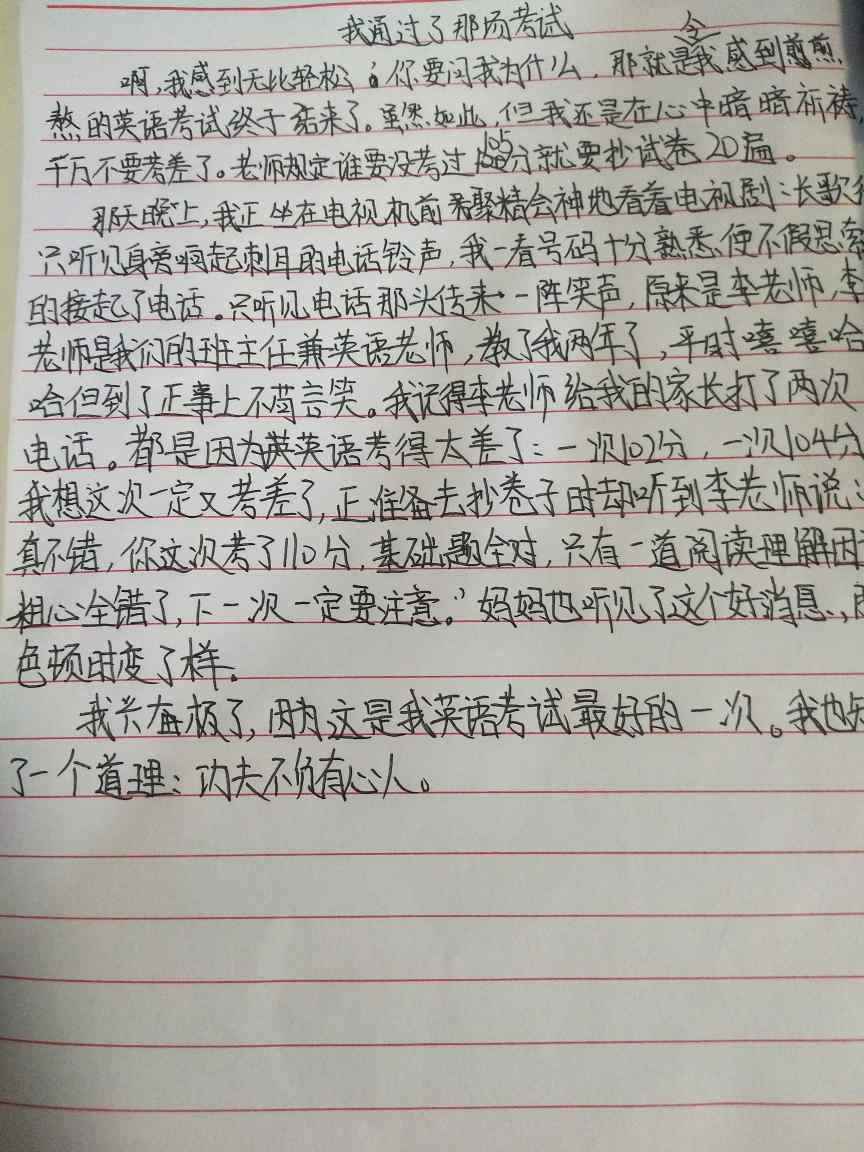 我通过了那场考试
啊,我感到无比轻松,你要问我为什么,那就是令我感到煎
熬的英语考试终于结束了。虽然如此,但我还是在心中暗暗祈祷,
千万不要考差了。老师规定谁要没考过105分就要抄试卷20遍。
那天晚上,我正坐在电视机前聚精会神地看着电视剧:长歌
只听见身旁响起刺耳的电话铃声,我一看号码十分熟悉,便不假思索
的接起了电话。只听见电话那头传来一阵笑声,原来是李老师,李
老师是我们的班主任兼英语老师,教了我两年了,平时嘻嘻哈
哈但到了正事上不苟言笑。我记得李老师给我的家长打了两次
电话。都是因为英语考得太差了:一次102分,一次104分
我想这次一定又考差了,正准备去抄卷子时却听到李老师说:
真不错,你这次考了110分,基础题全对,只有一道阅读理解因
粗心全错了,下一次一定要注意。”妈妈也听见了这个好消息,
色顿时变了样。
我兴奋极了,因为这是我英语考试最好的一次。我也
了一个道理:功夫不负有心人。